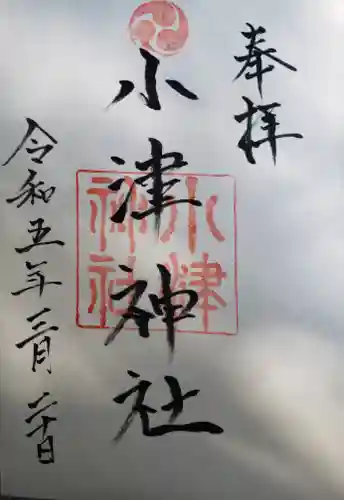 奉拝
小津神社
小津
神社
令和五年三月二十日